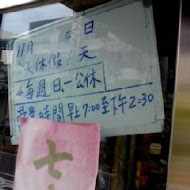 11月 日
大休假 天
每週日一公休
營業時間早7:00至下午2:30
七